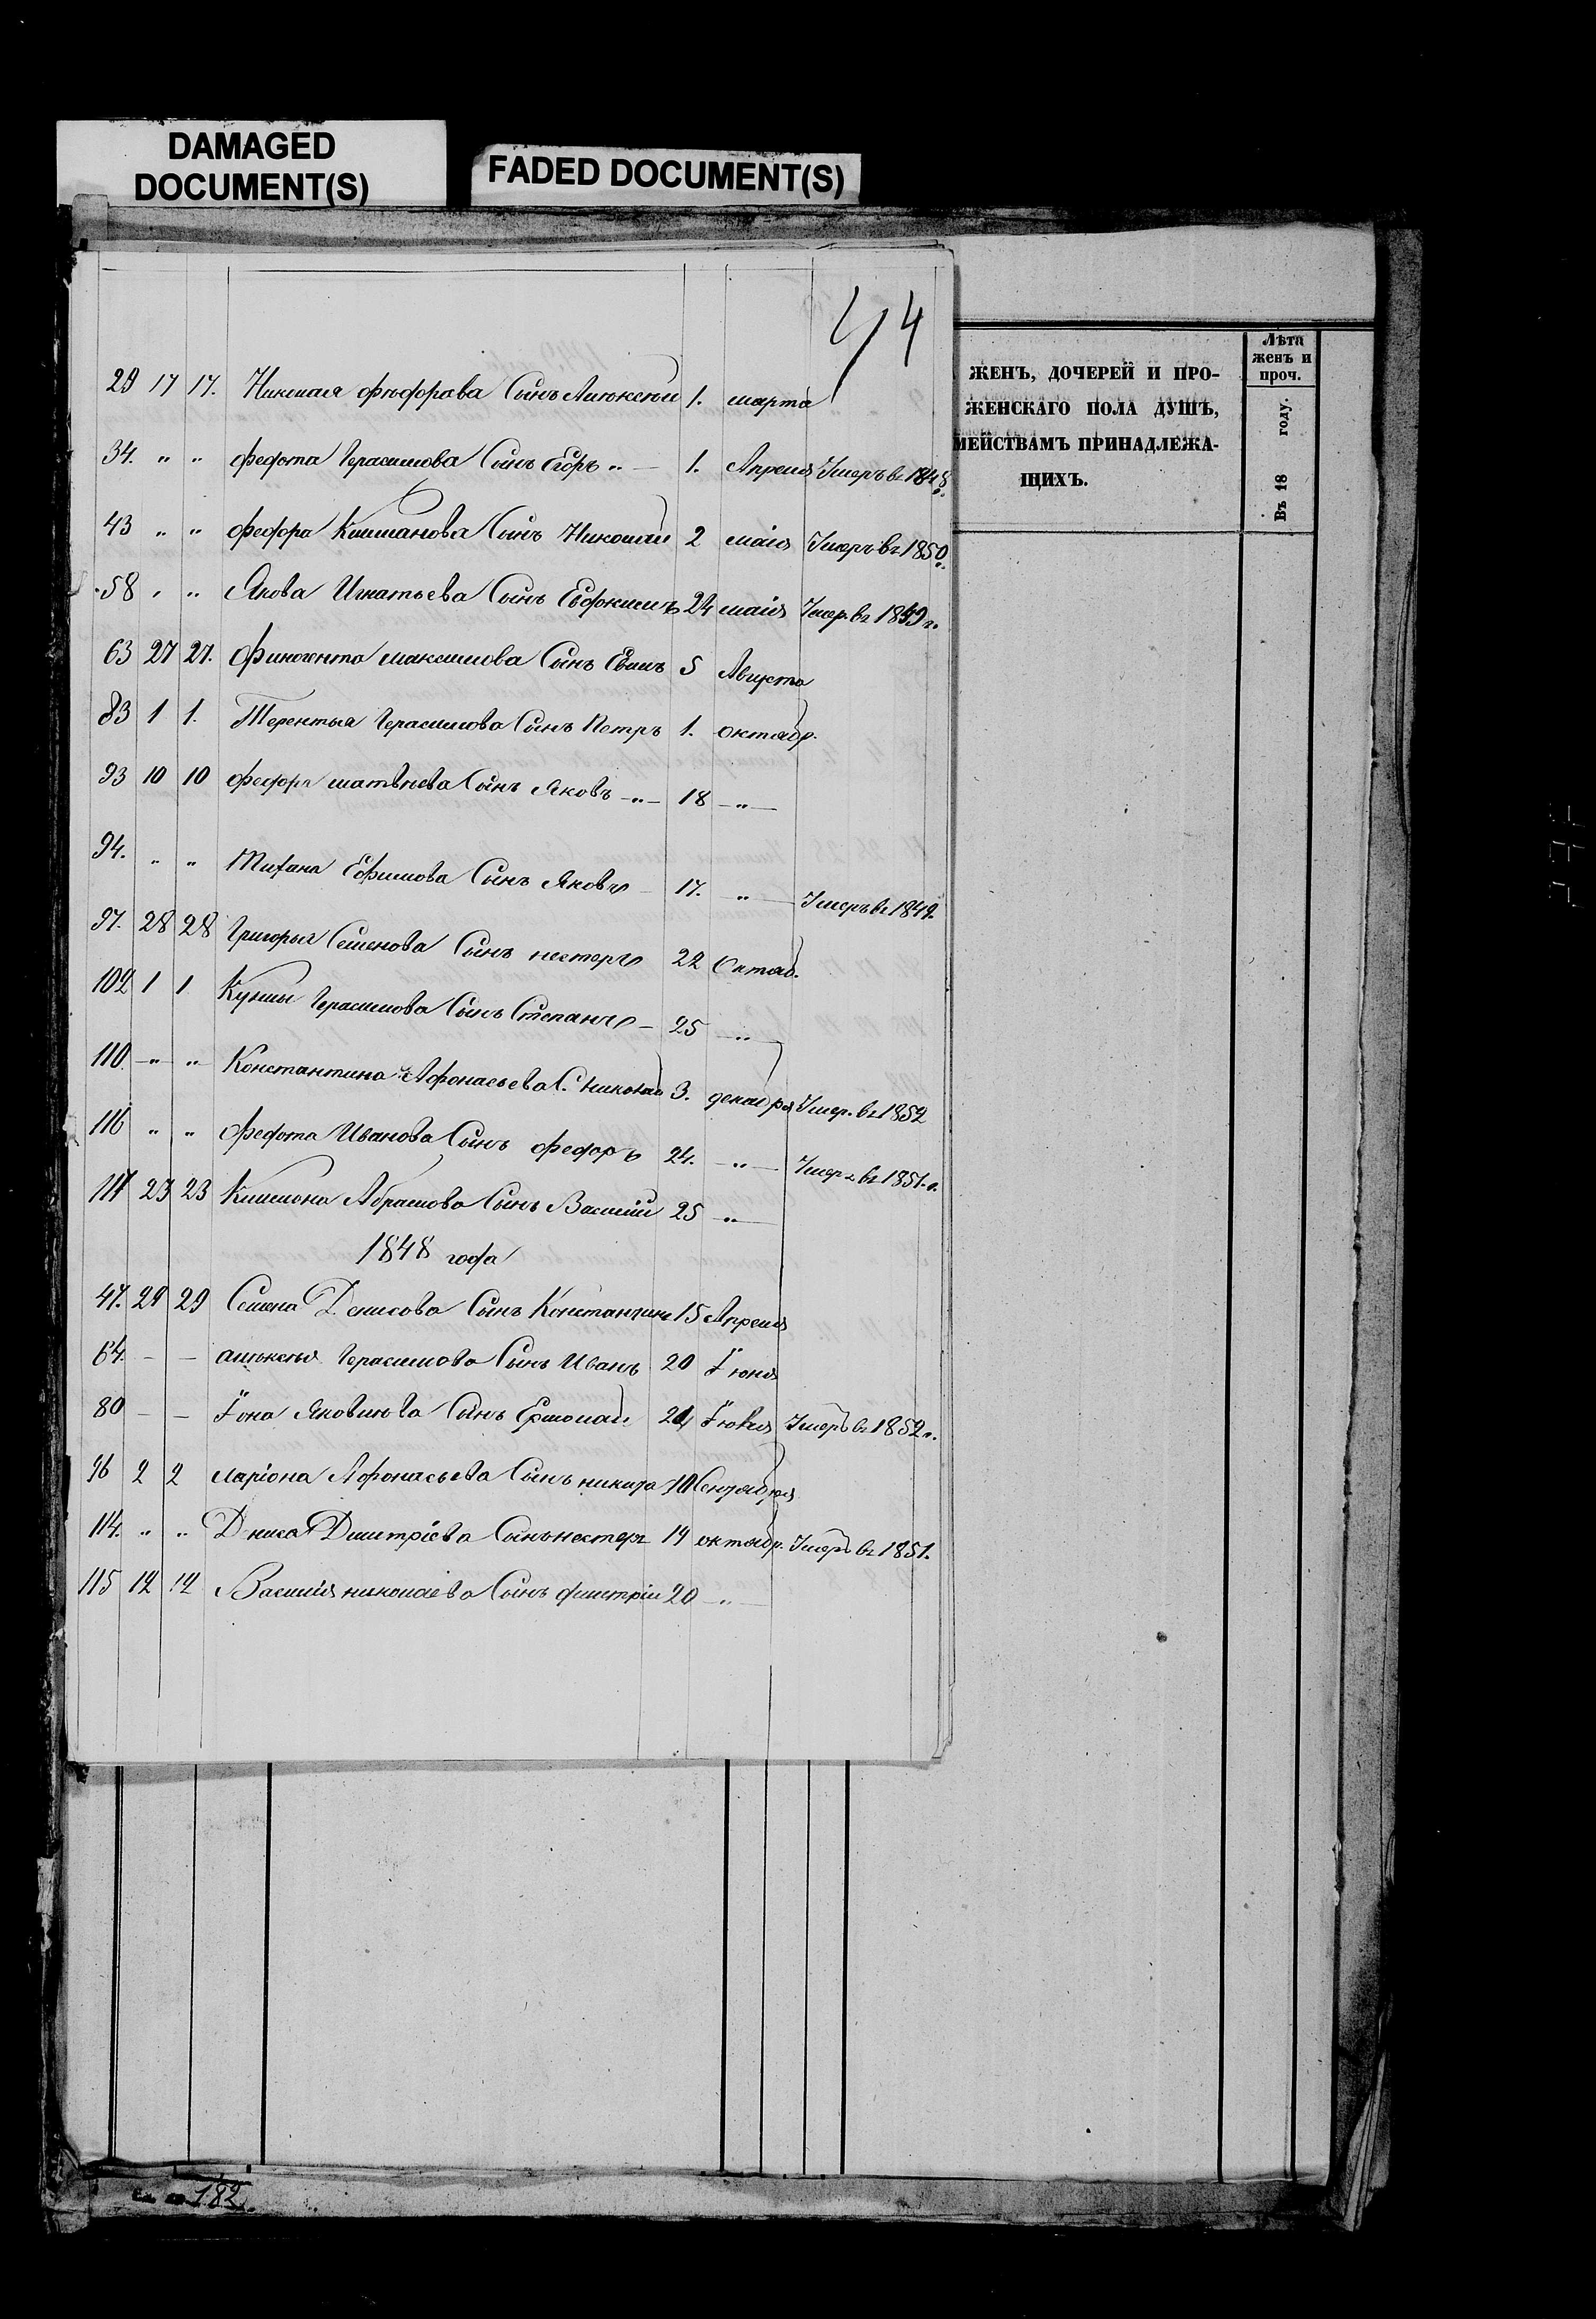 DAMAGED
DOCUMENT(S)
FADED DOCUMENT(S)
44
ЖЕНЪ, ДОЧЕРЕЙ И ПРО-
ЖЕНСКАГО ПОЛА ДУШЪ,
МЕЙСТВАМЪ ПРИНАДЛЕЖА-
ЩИХЪ.
Лѣта
женъ и
проч.
Въ 18 году.
29 17 17. Николая Сынъ Алексей 1. марта
34. " " Федота Герасимова Сынъ Егоръ " — 1. Апреля Умеръ въ 1848.
43 " " Федора Сынъ Николай 2 маія Умеръ въ 1850.
58 " " Якова Игнатьева Сынъ Евдокимъ 24 маія Умер. въ 1849 г.
63 27 27. Финогента максимова Сынъ 5 Августа
83 1 1. Терентья Герасимова Сынъ Петръ 1. октябр.
93 10 10 Федора матвѣева Сынъ Яковъ —"— 18 —"—
94. " " Ефимова Сынъ Яковъ — 17. —"— Умеръ въ 1849.
97. 28 28 Григорья Семенова Сынъ нестеръ 22 Октяб.
102 1 1 Кузмы Герасимова Сынъ Степанъ — 25 —"—
110. —"— " Константина Афонасьева С. Николай 3. декабря Умер. въ 1852
116 " " Федота Иванова Сынъ Федоръ 24. —"— Умеръ въ 1851. г.
117 23 23 Абрамова Сынъ Василий 25 —"—
1848 года
47. 29 29 Семена Денисова Сынъ Константинъ 15 Апреля
64. — — алексея Герасимова Сынъ Иванъ 20 Їюня
80 — — Їона Яковлева Сынъ Ермолай Їюля Умеръ въ 1852 г.
96 2 2 лариона Афонасьева Сынъ никита 10 Сентября
114. " " Дениса Дмитріева Сынъ нестеръ 19 октябр. Умеръ въ 1851.
115 12 12 Василия николаева Сынъ дмитрій 20 —"—
182.